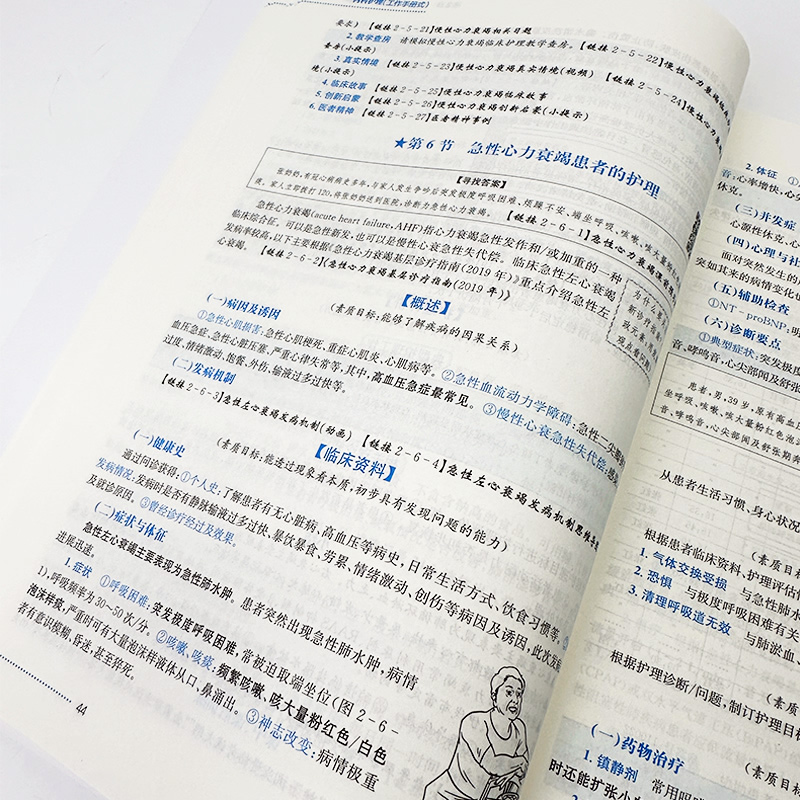 内科护理(工作手册式)
要求)　【链接 2-5-21】慢性心力衰竭相关习题
2. 教学查房　请模拟慢性心力衰竭临床护理教学查房。【链接 2-5-22】慢性心力衰竭临床
查房(小提示)
3. 真实情境　【链接 2-5-23】慢性心力衰竭真实情境(视频)　【链接 2-5-24】慢性心力衰竭真
境(小提示)
4. 临床故事　【链接 2-5-25】慢性心力衰竭临床故事
5. 创新启蒙　【链接 2-5-26】慢性心力衰竭创新启蒙(小提示)
6. 医者精神　【链接 2-5-27】医者精神事例
★第 6 节　急性心力衰竭患者的护理
【寻找答案】
张奶奶,有冠心病病史多年,与家人发生争吵后突发极度呼吸困难、烦躁不安、端坐呼吸、咳嗽、咳大量粉红
痰。家人立即拨打 120,将张奶奶送到医院,诊断为急性心力衰竭。　【链接 2-6-1】急性心力衰竭
急性心力衰竭(acute heart failure, AHF)指心力衰竭急性发作和/或加重的一种
临床综合征。可以是急性新发,也可以是慢性心衰急性失代偿。临床急性左心衰竭
发病率较高,以下主要根据《急性心力衰竭基层诊疗指南(2019 年)》重点介绍急性左
心衰竭。　【链接 2-6-2】《急性心力衰竭基层诊疗指南(2019 年)》
为什么要
新诊疗指
现点看
【概述】
(素质目标:能够了解疾病的因果关系)
(一)病因及诱因
①急性心肌损害:急性心肌梗死、重症心肌炎、心肌病等。②急性血流动力学障碍:急性二尖瓣
血压急症、急性心脏压塞、严重心律失常等,其中,高血压急症最常见。③慢性心衰急性失代偿:
过度、情绪激动、饱餐、外伤、输液过多过快等。
(二)发病机制
【链接 2-6-3】急性左心衰竭发病机制(动画)　【链接 2-6-4】急性左心衰竭发病机制思维导图
【临床资料】
(素质目标:能透过现象看本质;初步具有发现问题的能力)
(一)健康史
通过问诊获得:①个人史:了解患者有无心脏病、高血压等病史,日常生活方式、饮食习惯等;②
发病情况:发病时是否有静脉输液过多过快、暴饮暴食、劳累、情绪激动、创伤等病因及诱因,此次发病
及就诊原因。③曾经诊疗经过及效果。
(二)症状与体征
急性左心衰竭主要表现为急性肺水肿。患者突然出现急性肺水肿,病情
进展迅速。
1. 症状　①呼吸困难:突发极度呼吸困难,常被迫取端坐位(图 2-6-
1),呼吸频率为 30～50 次/分。②咳嗽、咳痰:频繁咳嗽、咳大量粉红色/白色
泡沫样痰,严重时可有大量泡沫样液体从口、鼻涌出。③神志改变:病情极重
者有意识模糊、昏迷,甚至猝死。
44
2. 体征　①
音;心率增快,心尖
休克。
(三)并发症
心源性休克、心
(四)心理与社
面对突然发生的
突如其来的病情变化也
(五)辅助检查
①NT-proBNP:明
(六)诊断要点
①典型症状:突发极度
音、哮鸣音,心尖部闻及舒张
患者,男,39 岁,原有高血
坐呼吸、咳嗽、咳大量粉红色泡沫
音、哮鸣音,心尖部闻及舒张期奔
从患者生活习惯、身心状况
(素质目标
根据患者临床资料,护理评估
1. 气体交换受损　与急性肺水
2. 恐惧　与极度呼吸困难有关
3. 清理呼吸道无效　与肺淤血、
(素质目标
根据护理诊断/问题,制订护理目标
(素质目
(一)药物治疗
1. 镇静剂　常用吗啡
时还能扩张小